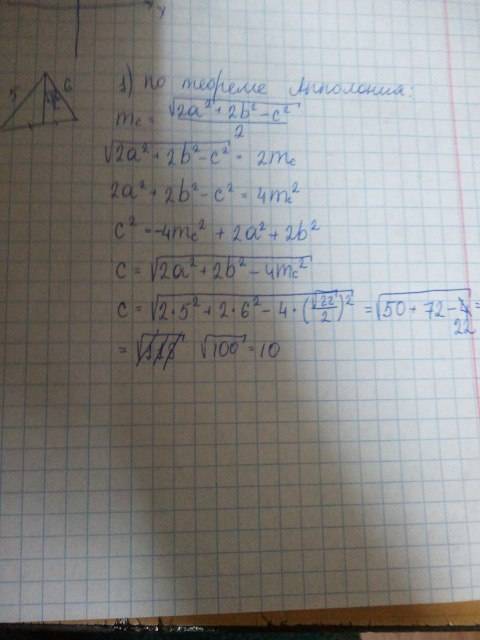 y
5 6
1) по теореме Апполония:
m_c = √(2a² + 2b² - c²) / 2
√(2a² + 2b² - c²) = 2m_c
2a² + 2b² - c² = 4m_c²
c² = -4m_c² + 2a² + 2b²
c = √(2a² + 2b² - 4m_c²)
c = √(2·5² + 2·6² - 4·(√22/2)²) = √(50 + 72 - 22) =
= √100 = 10